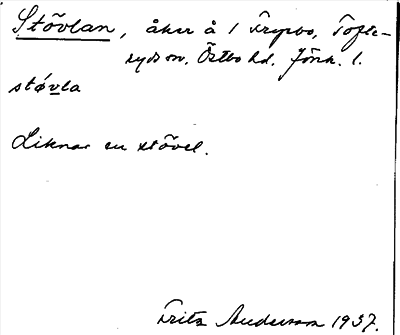 Stövlan, åker å 1 Fryebo, Tofte-
ryds sn. Östbo hd. Jönk. l.
støvla
Liknar en stövel.
Fritz Anderson 1937.